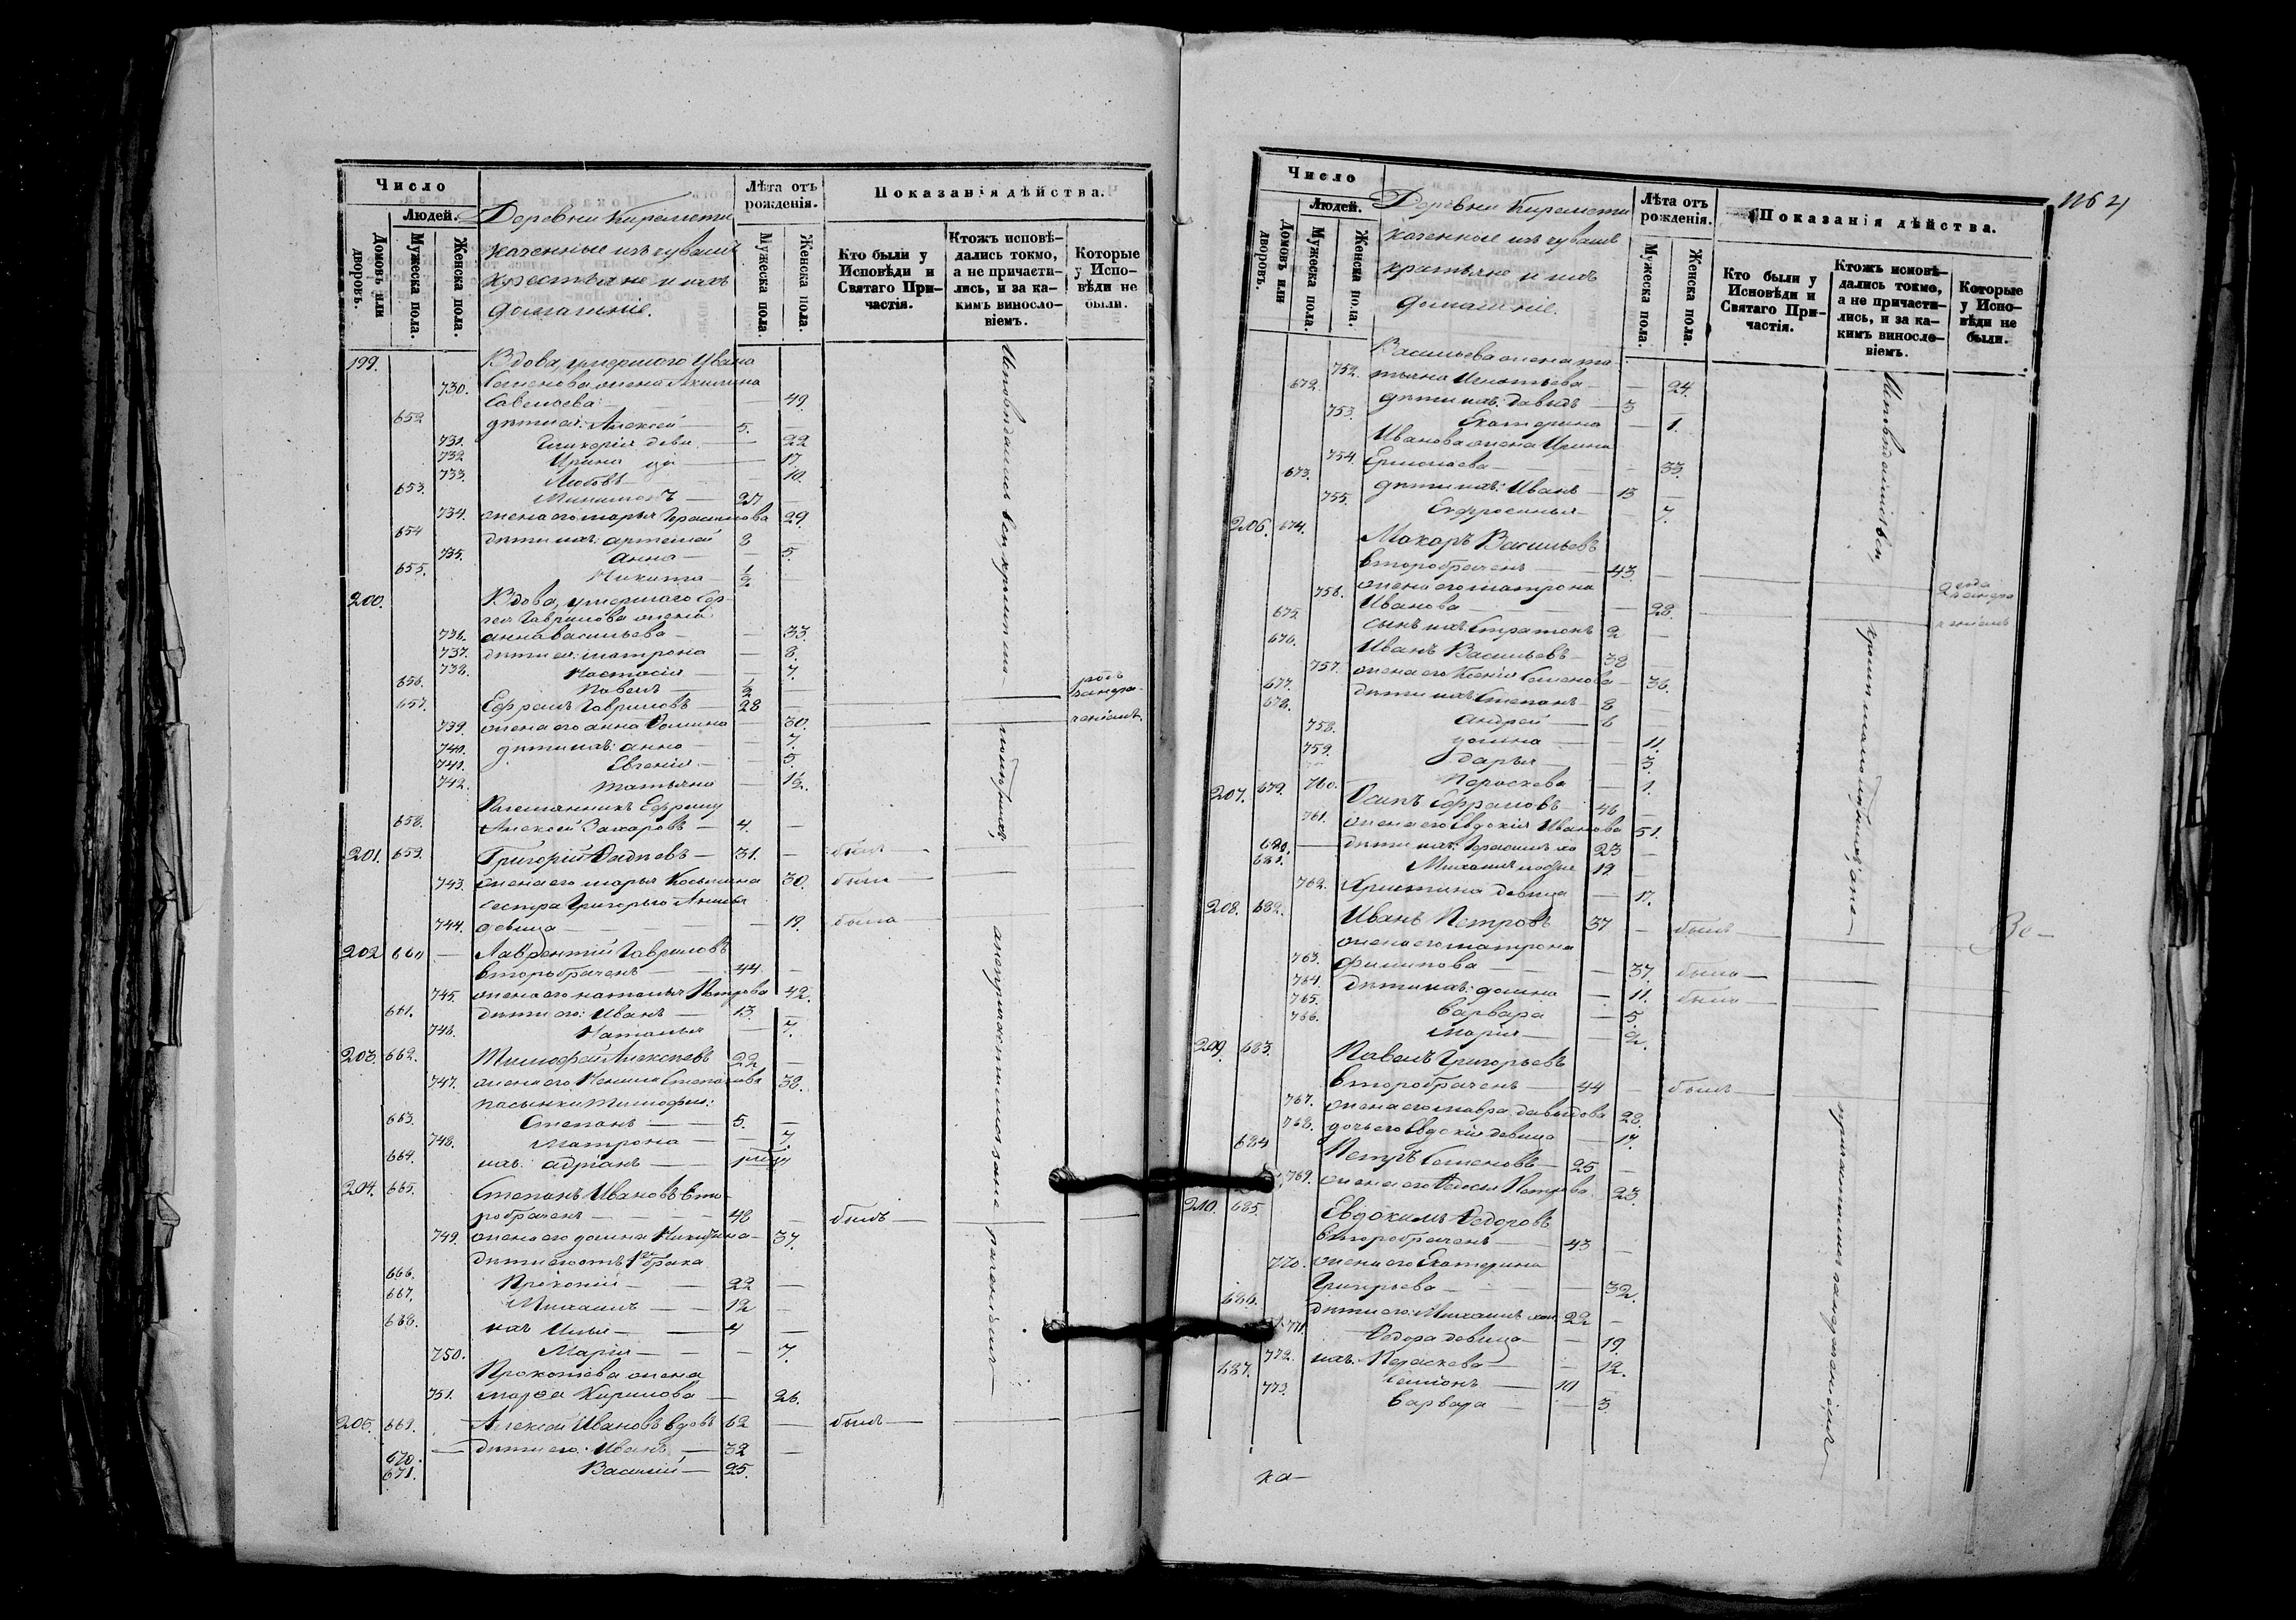 Число
Лѣта отъ рожденія.
Показанія дѣйства.
Людей.
Домовъ или дворовъ.
Мужеска пола.
Женска пола.
Деревни Киремети
казенные изъ чувашъ
крестьяне и ихъ
домашніе.
Мужеска пола
Женска пола.
Кто были у Исповѣди и Святаго Причастія.
Ктожъ исповѣдались токмо, а не причастились, и за какимъ винословіемъ.
Которые у Исповѣди не были.
199. Вдова, умершаго Ивана
730. Семенова жена Акилина
Савельева — 49.
652 дѣти ея: Алексей — 5. —
731. Гликерія деви. — 22
732 Ирина — 17.
733. Любовь — 10.
653. — 27 —
734. жена его Марья Герасимова 29.
654 дѣти ихъ: Артемій 8 —
735. Анна — — 5.
655. Никита — 1/2
200. Вдова, умершаго Сер-
гея Гаврилова жена
736. Анна Васильева — — 33.
737. дѣти ея: Матрона — 8.
738. Настасія — — 7.
656. Павелъ — 1/2 —
657. Ефремъ Гавриловъ — 28 —
739. жена его Анна Фомина 30.
740. дѣти ихъ: Анна — — 7.
741. Евгенія — — 5.
742. Татьяна — 1 1/2.
Племянникъ Ефрему
658. Алексей Захаровъ — 4. —
201. 659. Григорій Фадѣевъ — 31. — былъ —
743. жена его Марья Косьмина 30. была —
сестра Григорья
744. девица — — — 19. была —
202 660 — Лаврентій Гавриловъ
второбраченъ — — 44 —
745. жена его Наталья Петрова 42.
661. дѣти его: Иванъ — 13. —
746. Наталья — 7.
203. 662. Тимофей Алексѣевъ 22 —
747. жена его Степанова 38.
пасынки Тимофея:
663. Степанъ — — 5. —
748. Матрона — — 7.
664. ихъ: Адріанъ —
204. 665. Степанъ Ивановъ вто-
робраченъ — — 48 — былъ —
749. жена его Домна Никитина — 37.
дѣти его отъ 1го брака
666. Прокопій — — 22 —
667. Михаилъ — — 12 —
668. ихъ Илья — — 4 —
750. Марія — — — 7.
Прокопіева жена
751. Марфа Кирилова — 26.
205. 669. Алексей Ивановъ вдовъ 62 — былъ —
670. — дѣти его: Иванъ — 32 —
671. Василій — 25.
Исповѣдались вси кромѣ
помѣтныхъ,
а не причастились за не раченіемъ —
Число
Лѣта отъ рожденія.
Показанія дѣйства.
1164
Людей.
Домовъ или дворовъ.
Мужеска пола.
Женска пола.
Деревни Киремети
казенные изъ чувашъ
крестьяне и ихъ
домашніе.
Мужеска пола.
Женска пола.
Кто были у Исповѣди и Святаго Причастія.
Ктожъ исповѣдались токмо, а не причастились, и за какимъ винословіемъ.
Которые у Исповѣди не были.
Васильева жена Та-
752. тьяна Игнатьева — — 24.
672. дѣти ихъ: Давидъ — 3 —
753. Екатерина — 1.
Иванова жена Ирина
754. Ермолаева — — 33.
673. дѣти ихъ: Иванъ — 13 —
755. Евфросинья — — 7.
206. 674. Макаръ Васильевъ
второбраченъ — 43. —
756. жена его Матрона
Иванова — — — 28.
675. сынъ ихъ Стратонъ 2 —
676. Иванъ Васильевъ — 38 —
757. жена его Ксенія Семенова — 36.
677. дѣти ихъ: Степанъ — 8 —
678. Андрей — 6 —
758. Домна — — 11.
759. Дарья — — 3.
760. Параскева — 1.
207. 679. Осипъ Ефремовъ — 46 —
761. жена его Евдокія Иванова 51.
680. — дѣти ихъ: Герасимъ хо 23 —
681. Михаилъ 19. —
762. Христина девица — 17.
208. 682. Иванъ Петровъ 37 — былъ —
жена его Матрона
763. Филипова — — 37. была —
764. дѣти ихъ: Домна — 11. была —
765. Варвара — 5.
766. Марія — — 2.
209. 683. Павелъ Григорьевъ
второбраченъ — 44 — былъ —
767. жена его Мавра Давыдова 28.
768. дочь его Евдокія девица — 17.
684 Петръ Семеновъ — 25 —
769. жена его Петрова 23.
210. 685. Евдокимъ Федоровъ
второбраченъ — 43 —
770. жена его Екатерина
Григорьева — — — 32.
686. дѣти его: Михаилъ хол 22 —
771. Федора девица — — 19.
772. ихъ: Параскева — — 12.
687. Семіонъ — 10 —
773. Варвара — — 3.
Исповѣдались вси,
кромѣ помѣтныхъ, а не —
причастились за нераченіемъ —
ка—